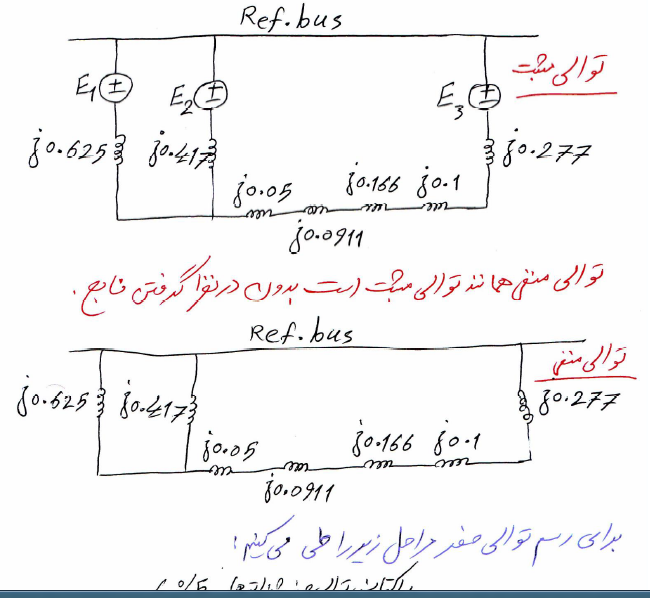 Ref.bus
توالی مثبت
E1 E2 E3
j0.625 j0.417 j0.277
j0.05 j0.166 j0.1
j0.0911
توالی منفی همانند توالی مثبت است بدون در نظر گرفتن منابع.
Ref.bus
توالی منفی
j0.625 j0.417 j0.277
j0.05 j0.166 j0.1
j0.0911
برای رسم توالی صفر مراحل زیر را طی می‌کنیم: